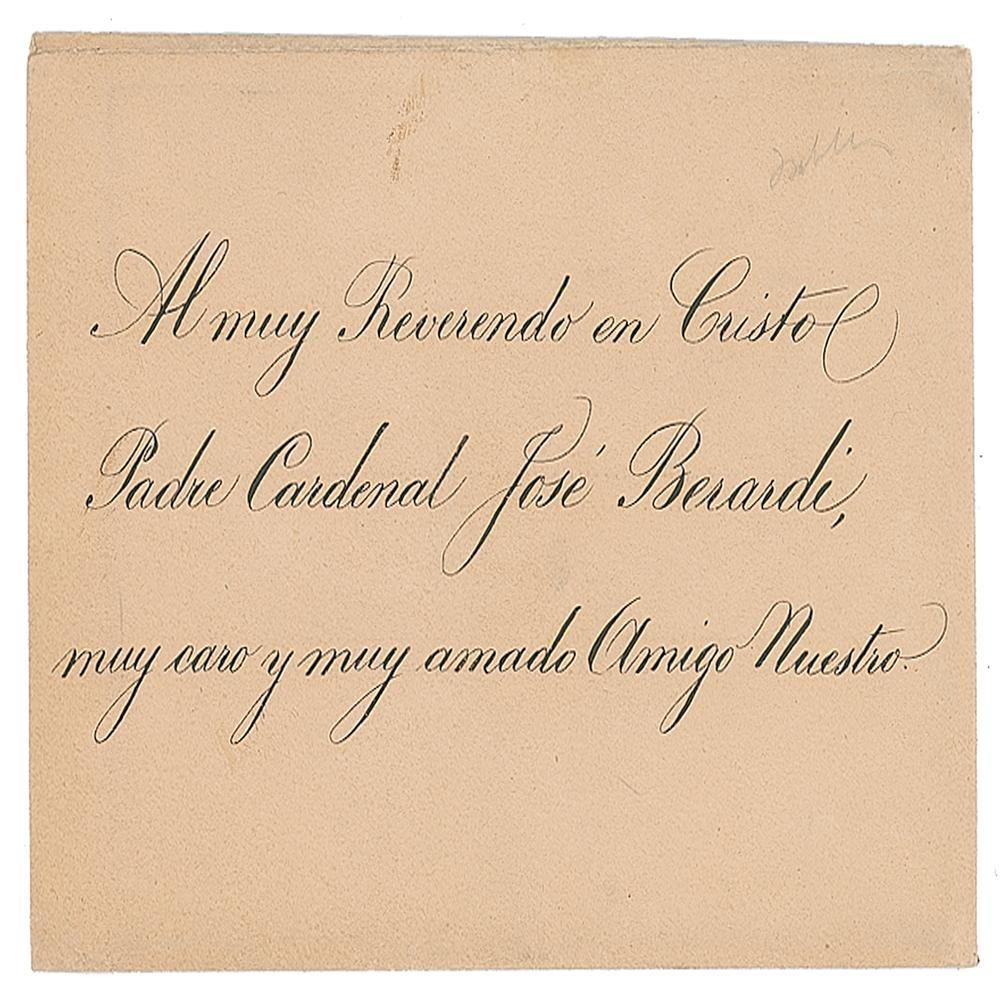 Al muy Reverendo en Cristo
Padre Cardenal José Berardi,
muy caro y muy amado Amigo Nuestro.